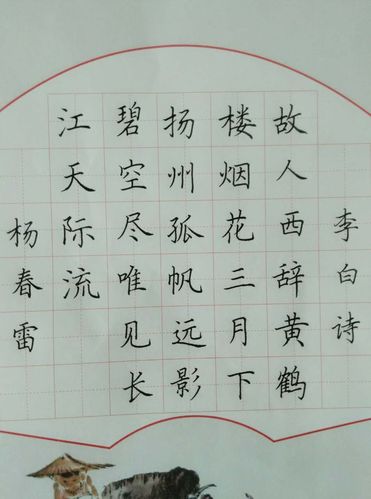 李白诗
故人西辞黄鹤
楼烟花三月下
扬州孤帆远影
碧空尽唯见长
江天际流
杨春雷